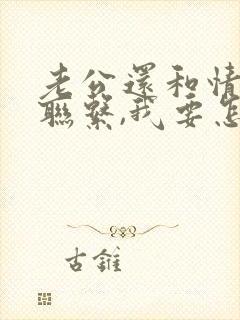 老公還和情
聯繫,我要怎
古錐